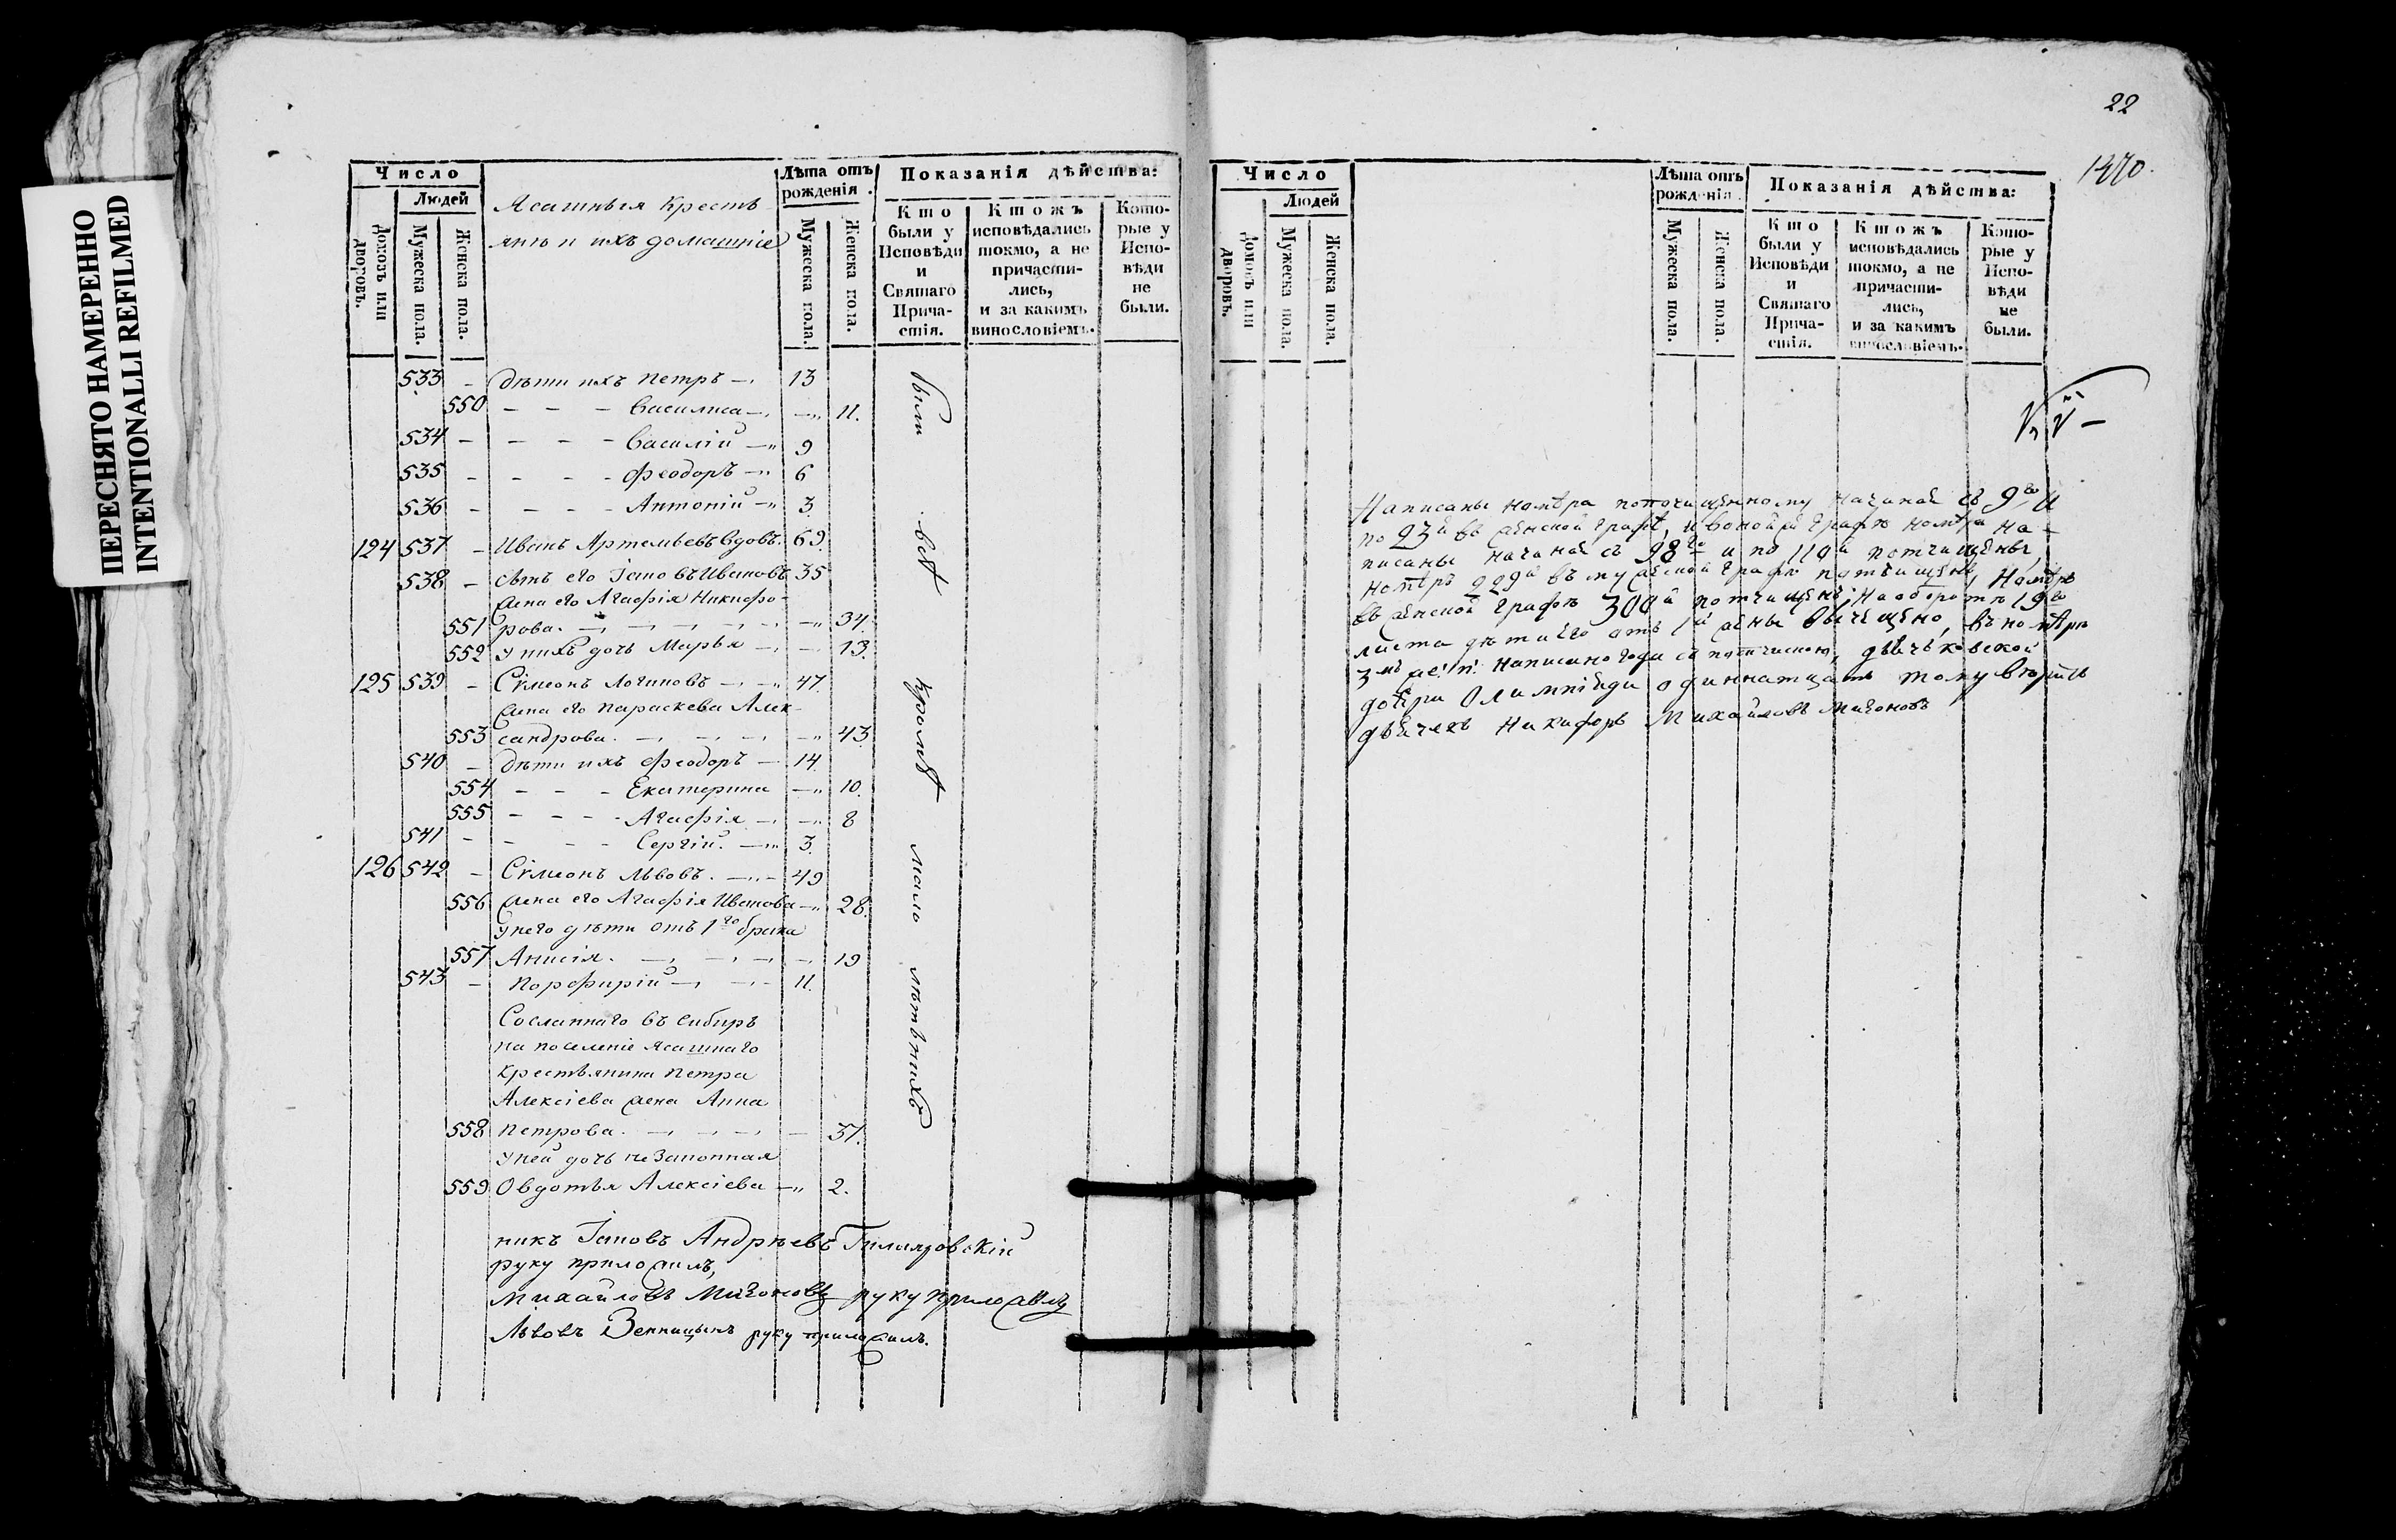 ПЕРЕСНЯТО НАМЕРЕННО
INTENTIONALLI REFILMED
Число
Людей
Домовъ или дворовъ.
Мужеска пола.
Женска пола.
Ясашныя Кресть-
яне и ихъ домашніе
Лѣта отъ рожденія.
Мужеска пола.
Женска пола.
Показанія дѣйства:
Кто были у Исповѣди и Святаго Причастія.
Ктожъ исповѣдались токмо, а не причастились, и за какимъ винословіемъ.
Которые у Исповѣди не были.
533 - дѣти ихъ Петръ 13
550 - - - Василиса 11.
534 - - - - Василій 9
535 - - - - Феодоръ 6
536 - - - - Антоній 3.
124 537 - Иванъ Артемьевъ вдовъ. 69.
538 - сынъ его Іаковъ Ивановъ 35
жена его Агафія Никифо-
551 рова. 34.
552 у нихъ дочь Марья 13.
125 539 - Сѵмеонъ Логиновъ 47.
жена его Параскева Алек-
553 сандрова. 43.
540 - дѣти ихъ Феодоръ 14.
554 - - - Екатерина 10.
555 - - - - Агафія 8
541 - - - - Сергій. 3.
126 542 - Сѵмеонъ Львовъ. 49
556 жена его Агафія Иванова 28.
У него дѣти отъ 1го брака
557 Анисія. 19
543 - Порфирій 11.
Сосланнаго въ Сибирь
на поселеніе Ясашнаго
крестьянина Петра
Алексіева жена Анна
558 Петрова. 37.
У ней дочь незаконная
559 Овдотья Алексіева 2.
были всѣ кромѣ мало лѣтнихъ
никъ Іаковъ Андреевъ Гиляровскій
руку приложилъ,
Михайловъ руку приложилъ
Львовъ руку приложилъ.
22
1470.
Число
Людей
Домовъ или дворовъ.
Мужеска пола.
Женска пола.
Лѣта отъ рожденія.
Мужеска пола.
Женска пола.
Показанія дѣйства:
Кто были у Исповѣди и Святаго Причастія.
Ктожъ исповѣдались токмо, а не причастились, и за какимъ винословіемъ.
Которые у Исповѣди не были.
Написаны номѣра по почищенному начиная съ 9го и
по 23й въ женской графѣ, и въ оной графѣ номѣра на-
писаны начиная съ 98го и по 110й почищены,
номѣръ 229й въ мужеской графѣ почищенъ, Номѣръ
въ женской графѣ 300й почищенъ; На оборотѣ 19го
листа дѣти его отъ 1й жены вычищено, въ номѣрѣ
3мъ написано года съ почисткою, дьячковской
дочери Олимпіяды одиннатцать тому вѣрить
дьячекъ Никифоръ Михайловъ